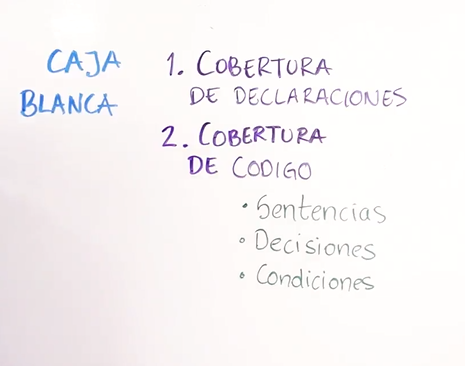 CAJA
BLANCA
1. COBERTURA
DE DECLARACIONES
2. COBERTURA
DE CODIGO
• Sentencias
• Decisiones
• Condiciones